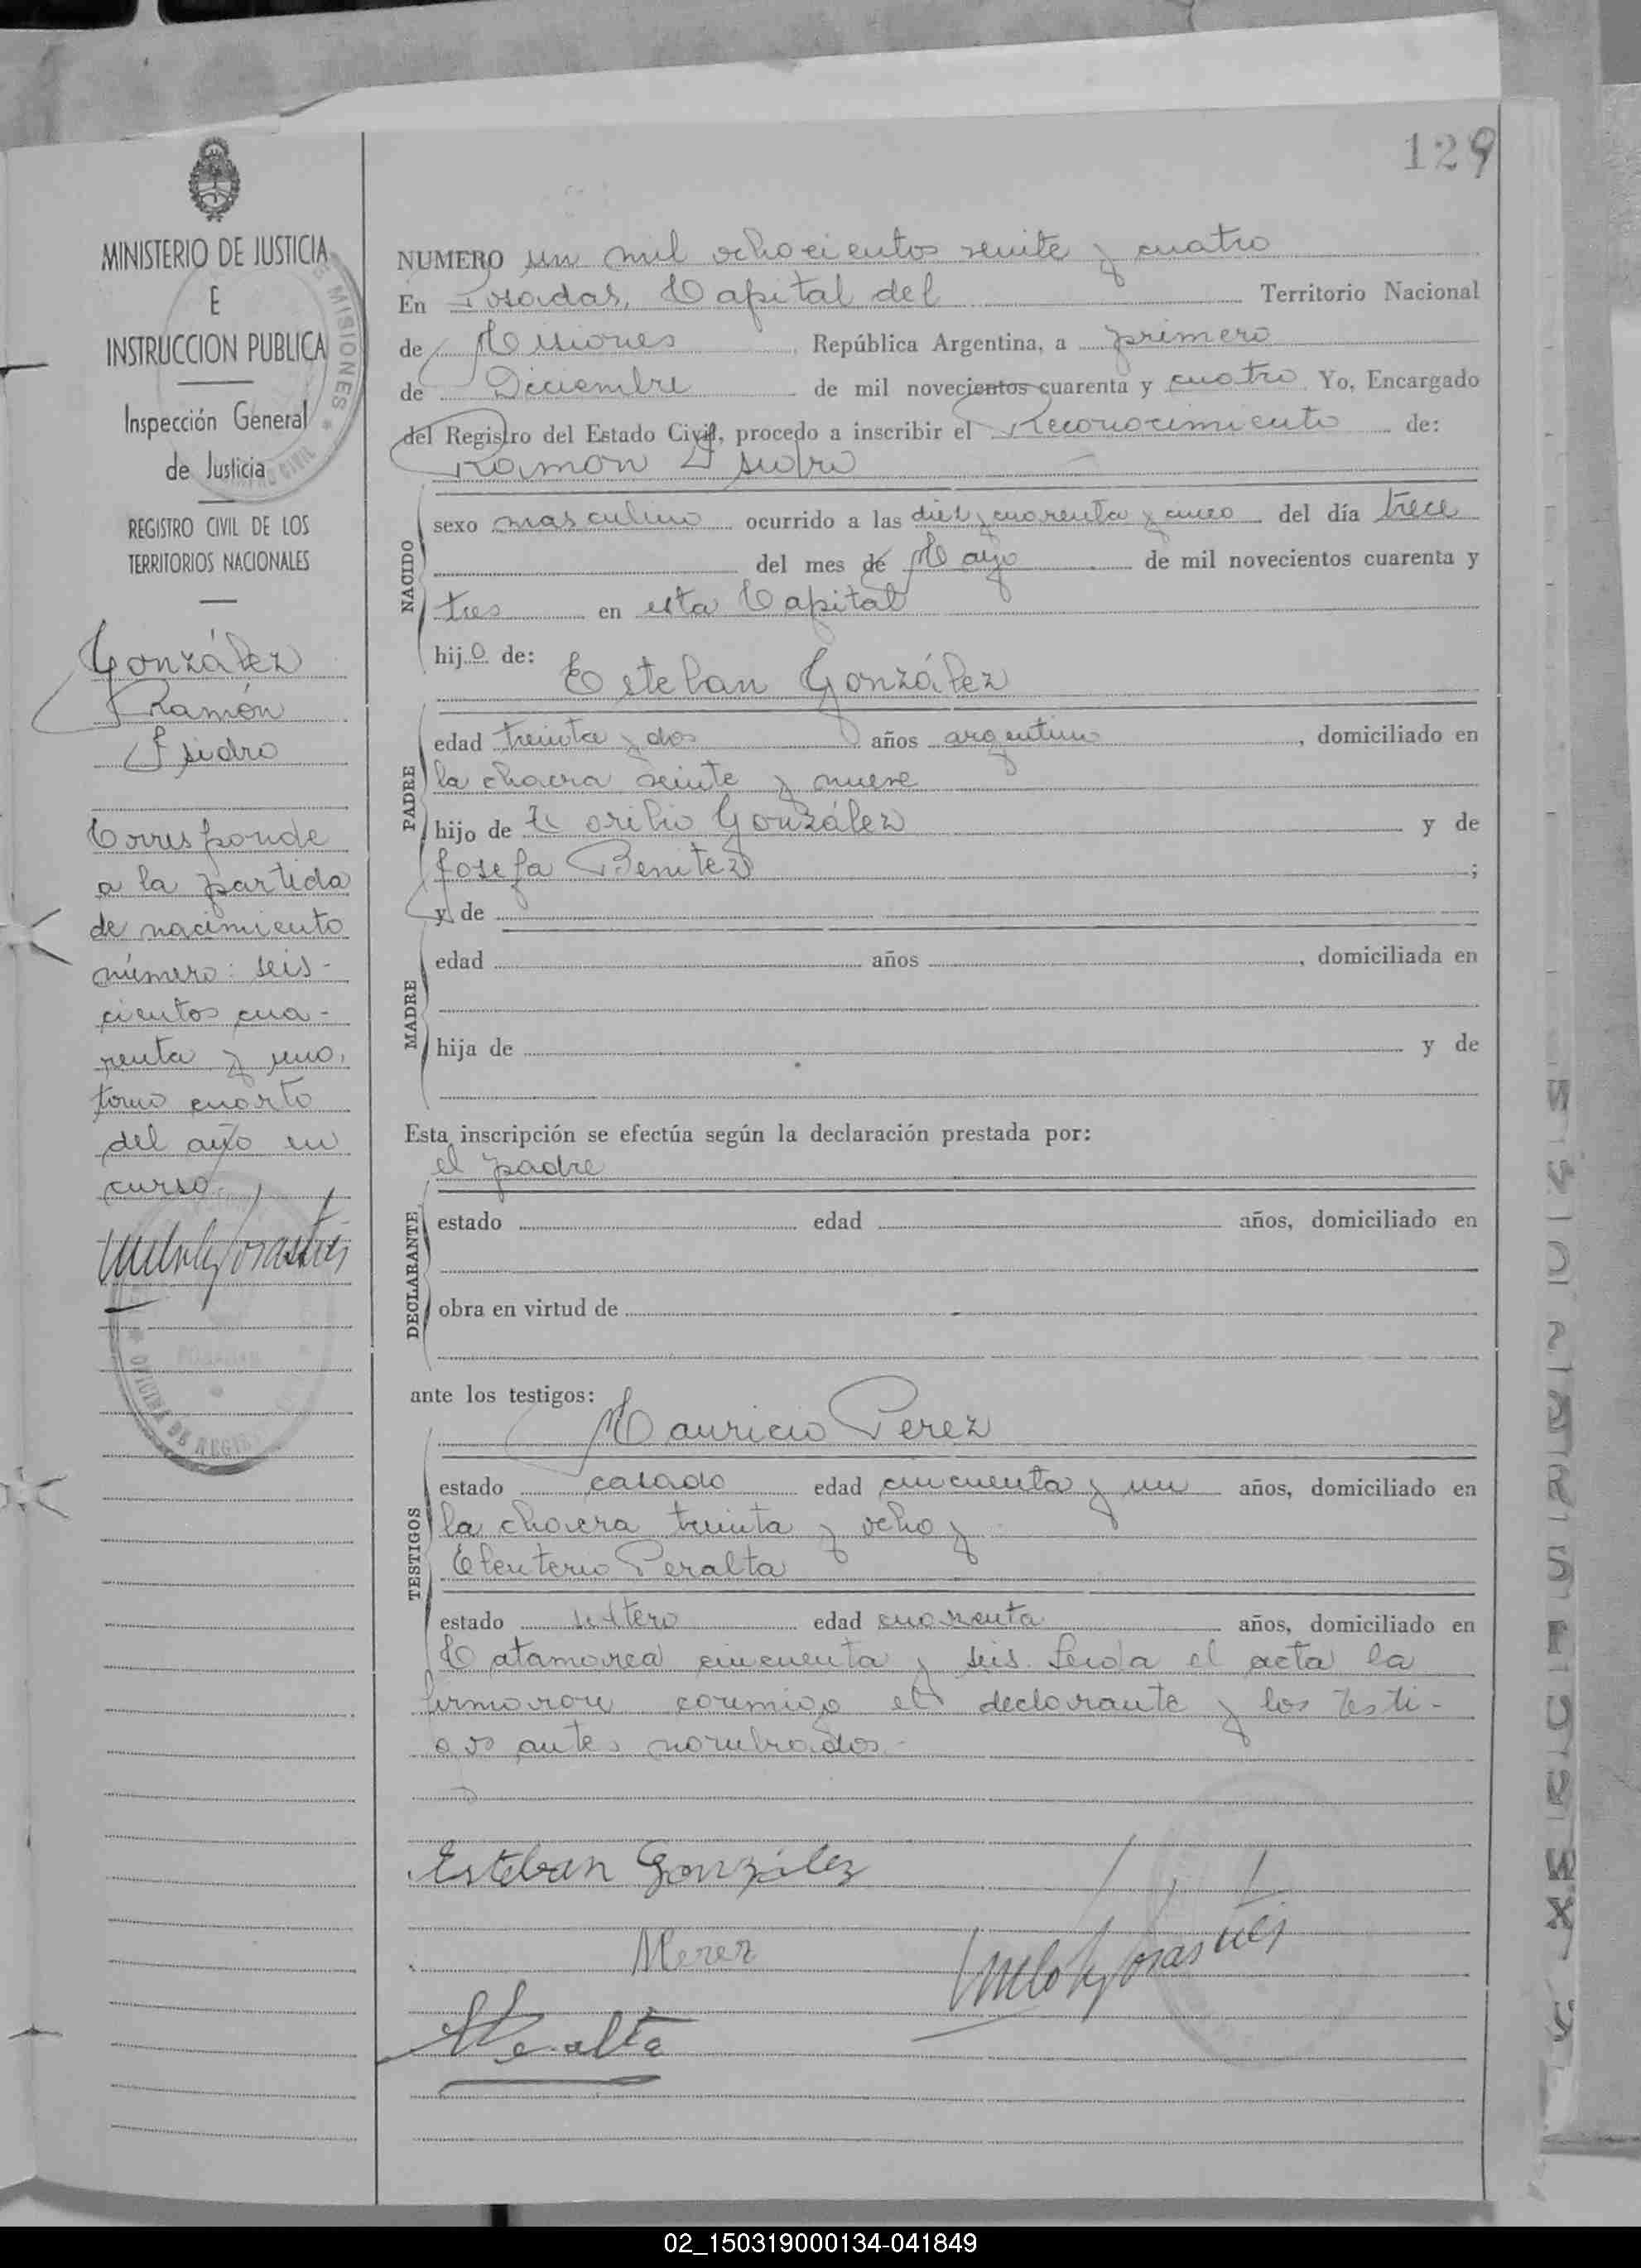 129
MINISTERIO DE JUSTICIA
E
INSTRUCCION PUBLICA
Inspección General
de Justicia
REGISTRO CIVIL DE LOS
TERRITORIOS NACIONALES
MISIONES
González
Ramón
Isidro
Corresponde
a la partida
de nacimiento
número: seis-
cientos cua-
renta y uno,
tomo cuarto
del año en
curso.
OFICINA DE REGIS
NUMERO un mil ochocientos veinte y cuatro
En Posadas, Capital del Territorio Nacional
de Misiones República Argentina, a primero
de Diciembre de mil novecientos cuarenta y cuatro Yo, Encargado
del Registro del Estado Civil, procedo a inscribir el Reconocimiento de:
Ramón Isidro
NACIDO
sexo masculino ocurrido a las diez y cuarenta y cinco del día trece
del mes de Mayo de mil novecientos cuarenta y
tres en esta Capital
hijo de:
Esteban González
PADRE
edad treinta y dos años argentino, domiciliado en
la chacra veinte y nueve
hijo de Toribio González y de
Josefa Benitez ;
y de
MADRE
edad años , domiciliada en
hija de y de
Esta inscripción se efectúa según la declaración prestada por:
el padre
DECLARANTE
estado edad años, domiciliado en
obra en virtud de
ante los testigos:
Mauricio Perez
TESTIGOS
estado casado edad cincuenta y un años, domiciliado en
la chacra treinta y ocho y
Eleuterio Peralta
estado soltero edad cuarenta años, domiciliado en
Catamarca cincuenta y seis. Leida el acta la
firmaron conmigo el declarante y los testi-
gos antes nombrados.-
Esteban González
MPerez
Peralta
02_150319000134-041849